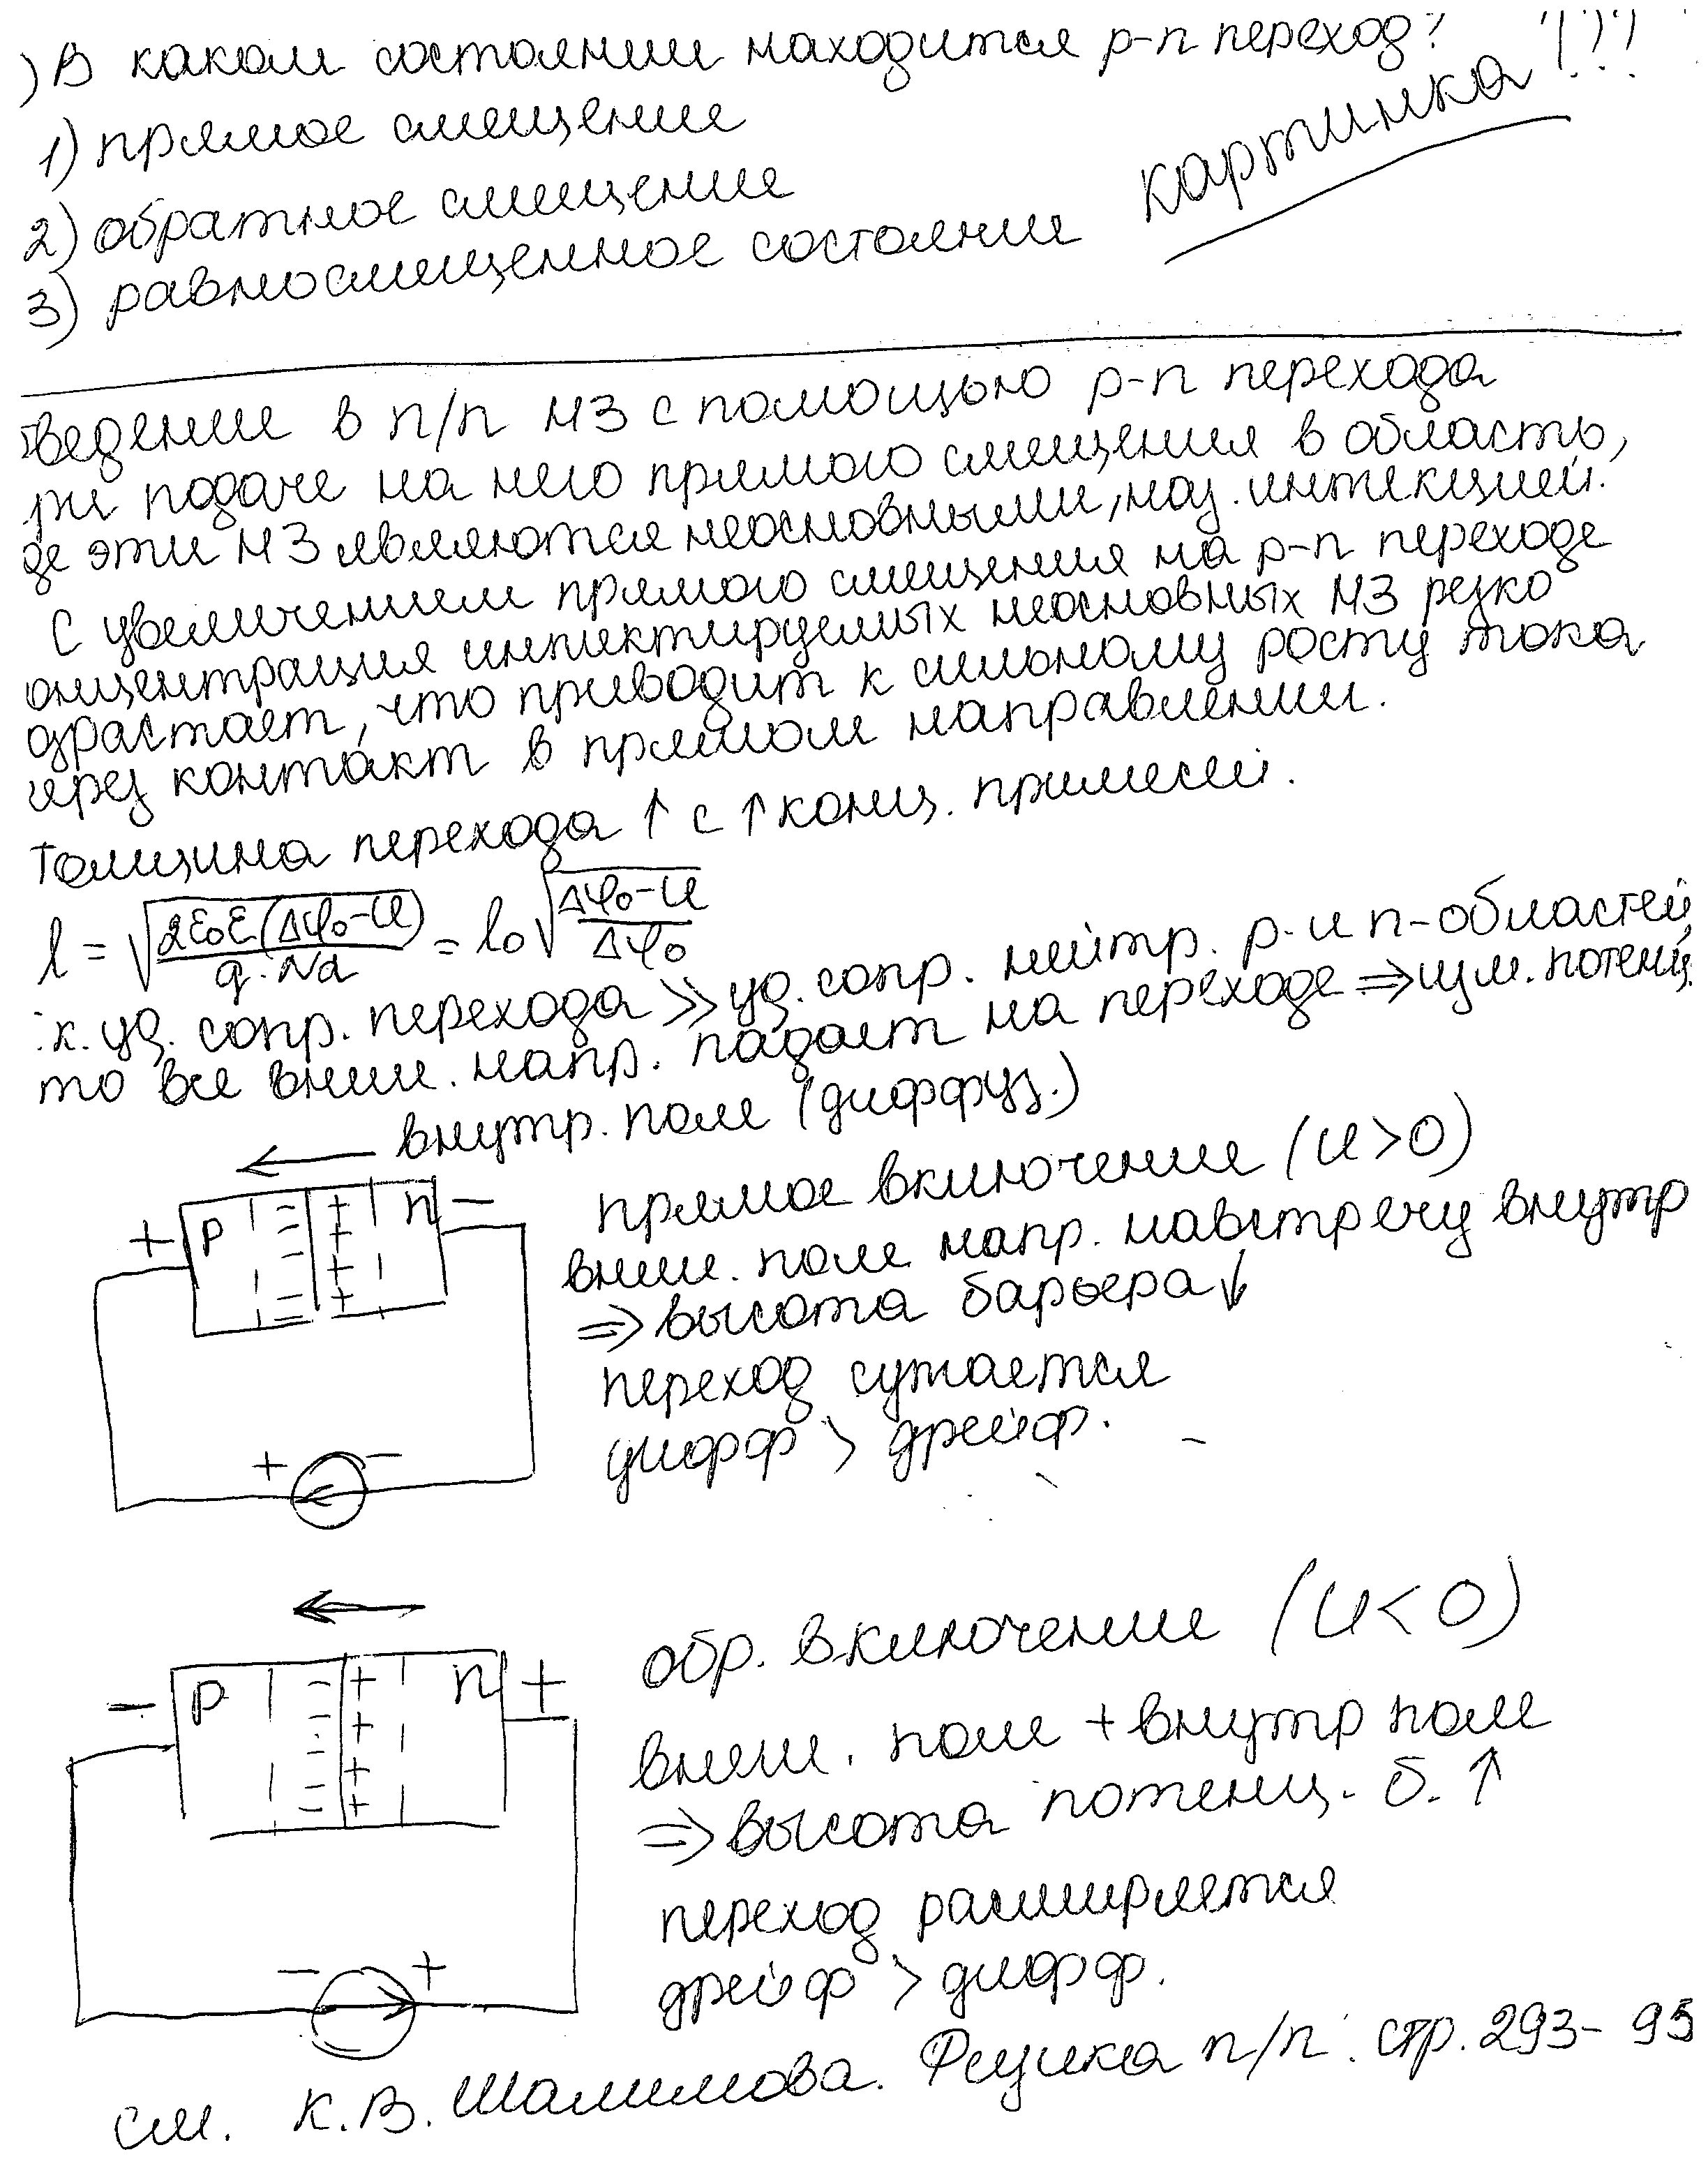 ) В каком состоянии находится p-n переход?
картинка!??
1) прямое смещение
2) обратное смещение
3) равносмещенное состояние
ведение в п/п НЗ с помощью p-n перехода
ри подаче на него прямого смещения в область,
де эти НЗ являются неосновными, наз. инжекцией.
С увеличением прямого смещения на p-n переходе
онцентрация инжектируемых неосновных НЗ резко
озрастает, что приводит к сильному росту тока
через контакт в прямом направлении.
Толщина перехода ↑ с ↑ конц. примесей.
l = √(2ε₀ε(Δφ₀-U)/(q·Nd)) = l₀√((Δφ₀-U)/Δφ₀)
т.к. уд. сопр. перехода ≫ уд. сопр. нейтр. p- и n-областей,
то все внеш. напр. падает на переходе ⇒ изм. потенц.
← внутр. поле (диффуз.)
+ p - + n -
прямое включение (U>0)
внеш. поле напр. навстречу внутр
⇒ высота барьера ↓
переход сужается
дифф > дрейф.
+ -
←
- p - + n +
обр. включение (U<0)
внеш. поле + внутр поле
⇒ высота потенц. б. ↑
переход расширяется
дрейф > дифф.
- +
см. К.В. Шалимова. Физика п/п. стр. 293-95